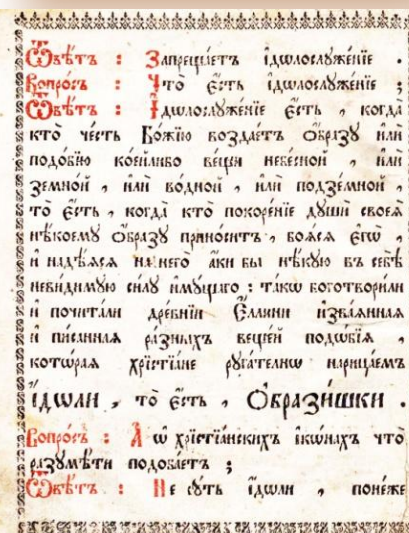 Ѿвѣ́тъ : Запреща́етъ і҆дѡлослꙋже́нїе .
Вопро́съ : Что̀ є҆́сть і҆дѡлослꙋже́нїе ;
Ѿвѣ́тъ : І҆дѡлослꙋже́нїе є҆́сть , когда̀
кто̀ че́сть Бо́жїю воздае́тъ ѡ҆́бразꙋ и҆лѝ
подо́бїю коеѧ́либо ве́щи небе́сной , и҆лѝ
земно́й , и҆лѝ во́дной , и҆лѝ подзе́мной ,
то̀ є҆́сть , когда̀ кто̀ покоре́нїе дꙋшѝ своеѧ̀
нѣ́коемꙋ ѡ҆́бразꙋ прино́ситъ , боѧ́сѧ є҆гѡ̀ ,
и҆ надѣ́ѧсѧ на него̀ а҆́ки бы нѣ́кꙋю въ себѣ̀
неви́димꙋю си́лꙋ и҆мꙋ́щаго : та́кѡ боготвори́ли
и҆ почита́ли дре́внїи Є҆́ллини и҆зва́ѧннаѧ
и҆ пи̑саннаѧ ра́зныхъ веще́й подѡ́бїѧ ,
котѡ́раѧ хрїстїа́не рꙋга́телнѡ нарица́емъ
і҆́дѡли , то̀ є҆́сть , Ѻ҆брази́шки .
Вопро́съ : А҆ ѡ҆ хрїстїа́нскихъ і҆кѡ́нахъ что̀
разꙋмѣ́ти подоба́етъ ;
Ѿвѣ́тъ : Не сꙋ́ть і҆́дѡли , поне́же